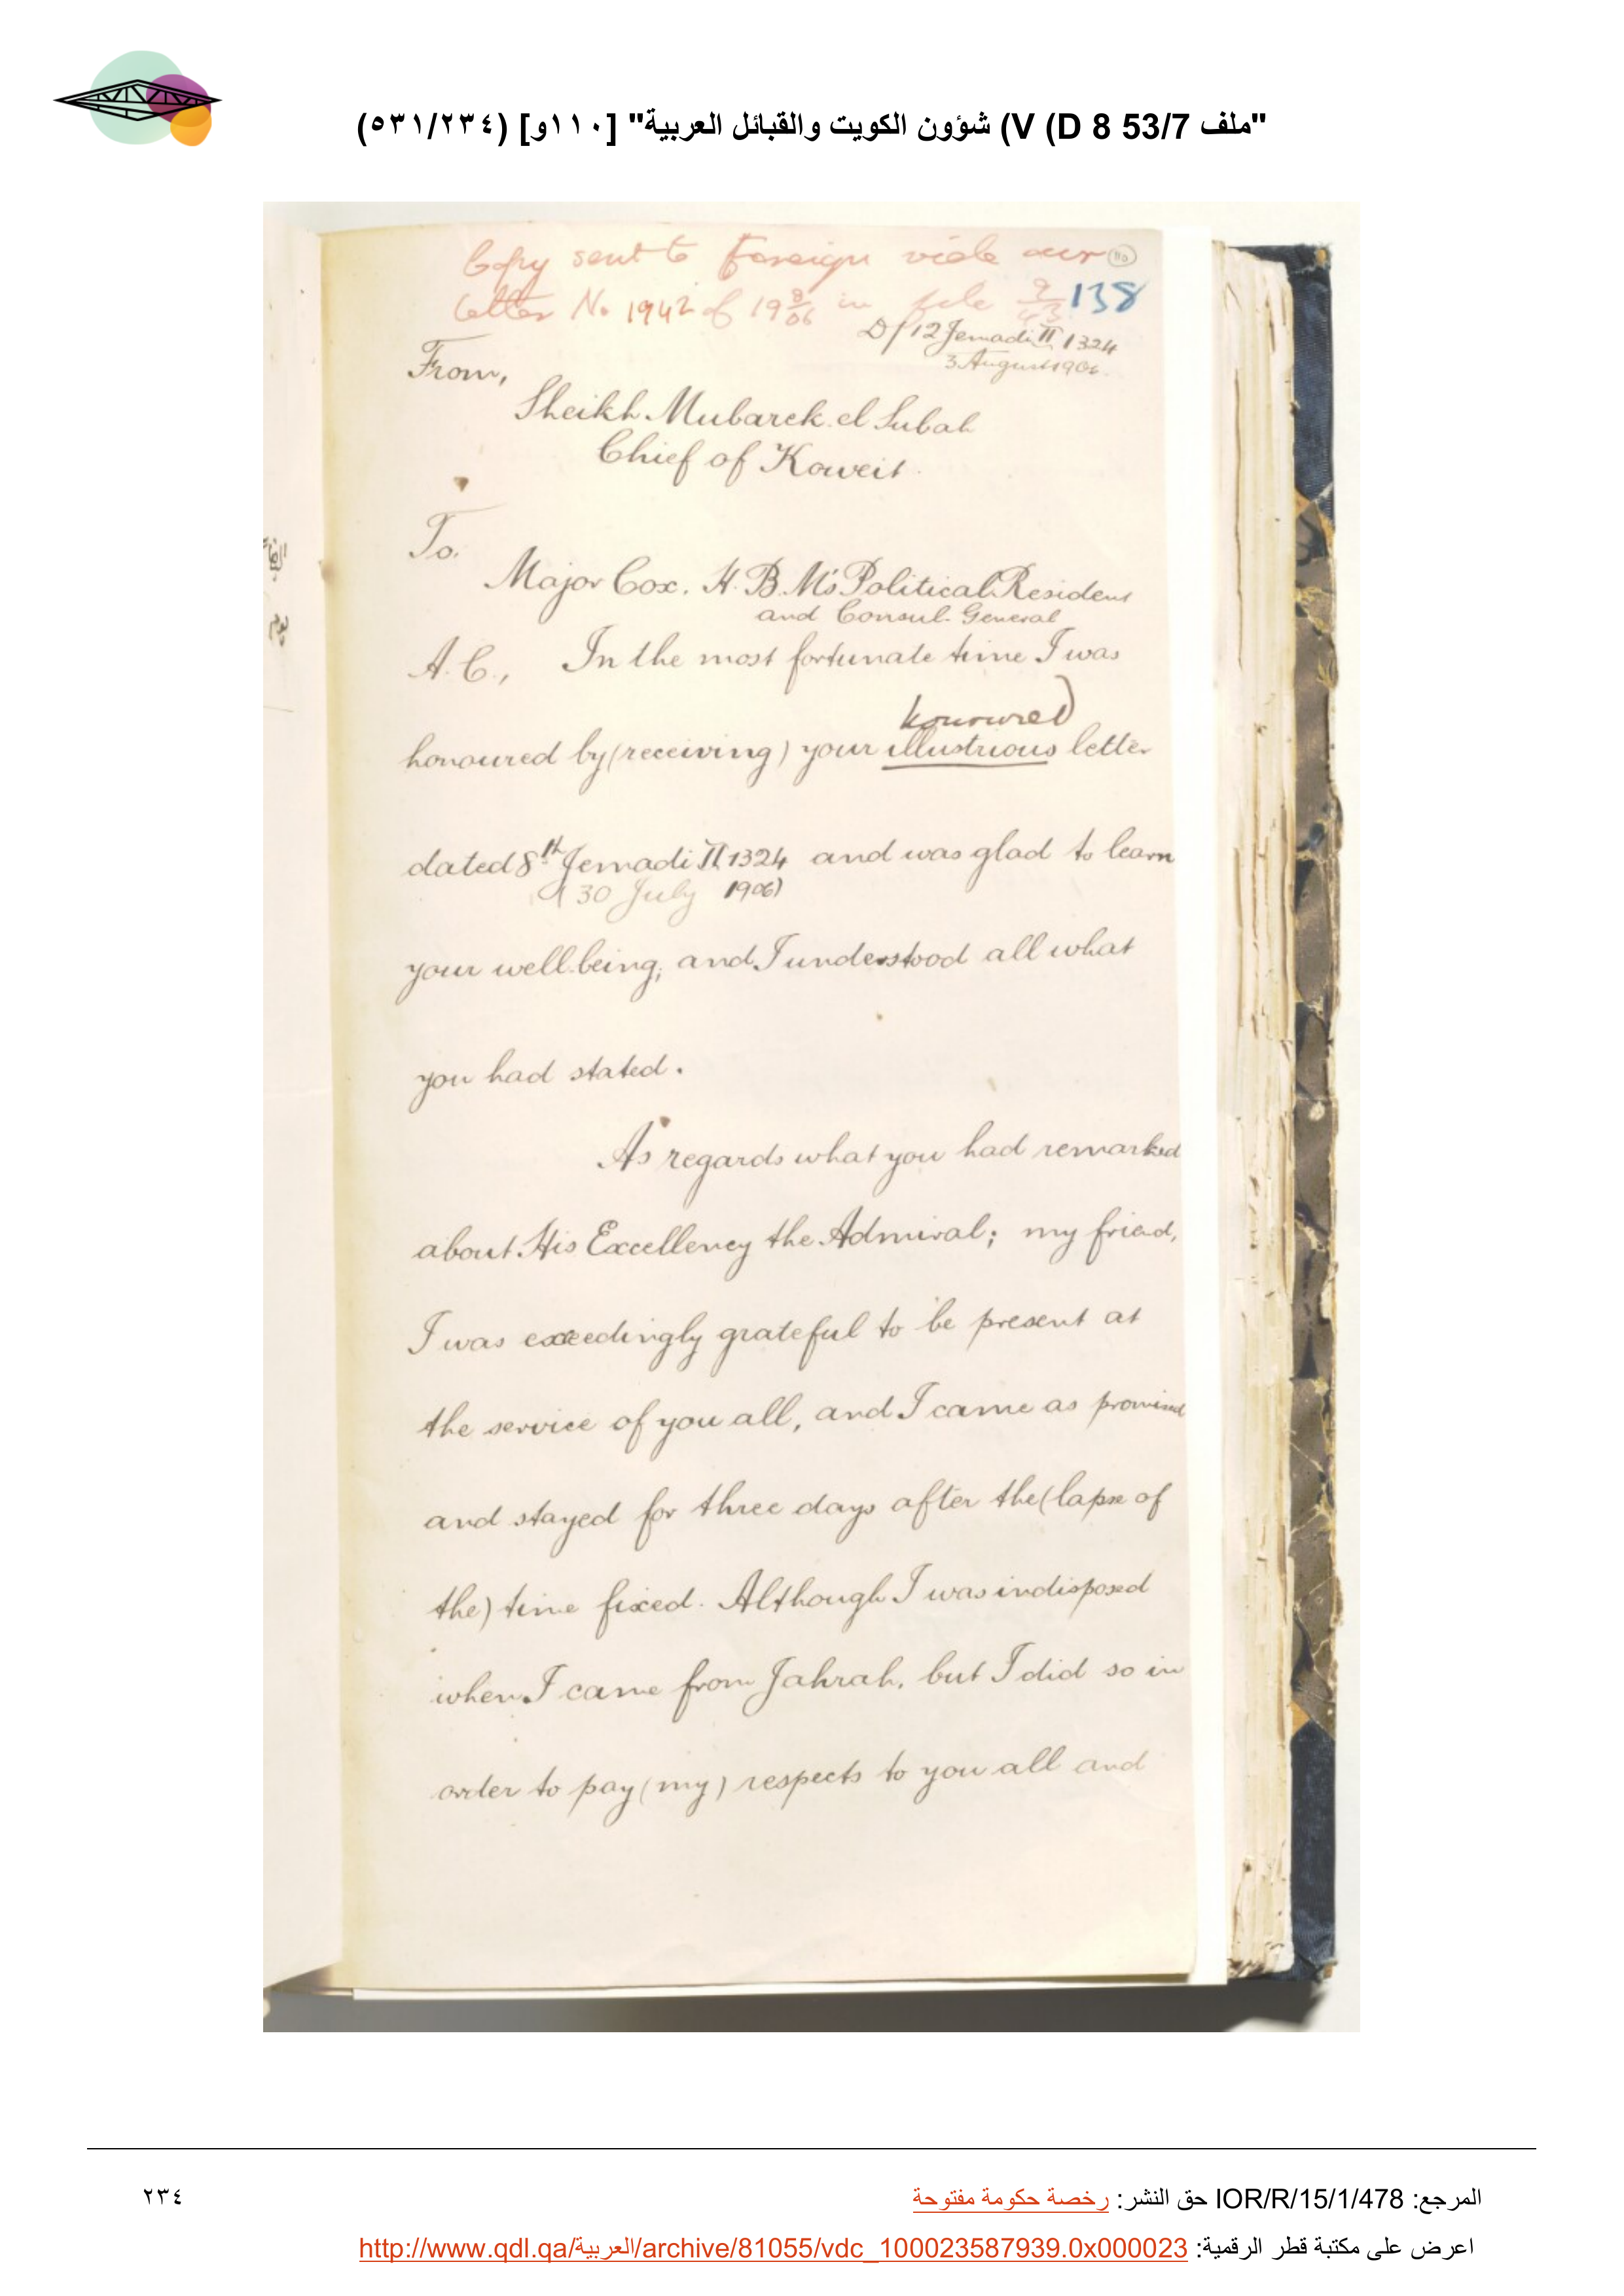 "ملف 53/7 D 8) V) شؤون الكويت والقبائل العربية" [١١٠و] (٥٣١/٢٣٤)
Copy sent to Foreign vide our
110
letter No 1942 of 19 8/06 in file
138
D/ 12 Jemadi II 1324
3 August 1906.
From,
Sheikh Mubarek el Subah
Chief of Koweit.
To.
Major Cox. H.B.M's Political Resident
and Consul-General
A.C., In the most fortunate time I was
honoured)
honoured by (receiving) your illustrious letter
dated 8th Jemadi II 1324 and was glad to learn
(30 July 1906)
your well being; and I understood all what
you had stated.
As regards what you had remarked
about His Excellency the Admiral; my friend,
I was exceedingly grateful to be present at
the service of you all, and I came as promised
and stayed for three days after the (lapse of
the) time fixed. Although I was indisposed
when I came from Jahrah, but I did so in
order to pay (my) respects to you all and
المرجع: IOR/R/15/1/478 حق النشر: رخصة حكومة مفتوحة
٢٣٤
اعرض على مكتبة قطر الرقمية: http://www.qdl.qa/العربية/archive/81055/vdc_100023587939.0x000023